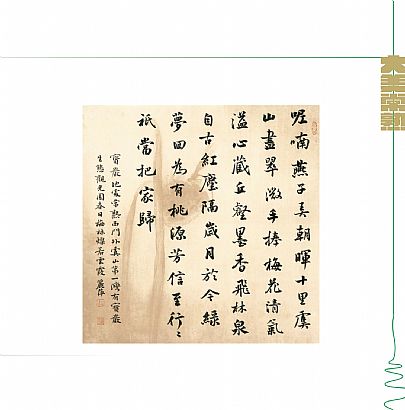 大美常熟
呢喃燕子美朝暉十里虞
山盡翠微手捧梅花清氣
溢心藏丘壑墨香飛林泉
自古紅塵隔歲月於今綠
夢回為有桃源芳信至行〻
祇當把家歸
寶巖地處常熟西門外虞山第一灣有寶巖
生態觀光園春日梅林燦若雲霞